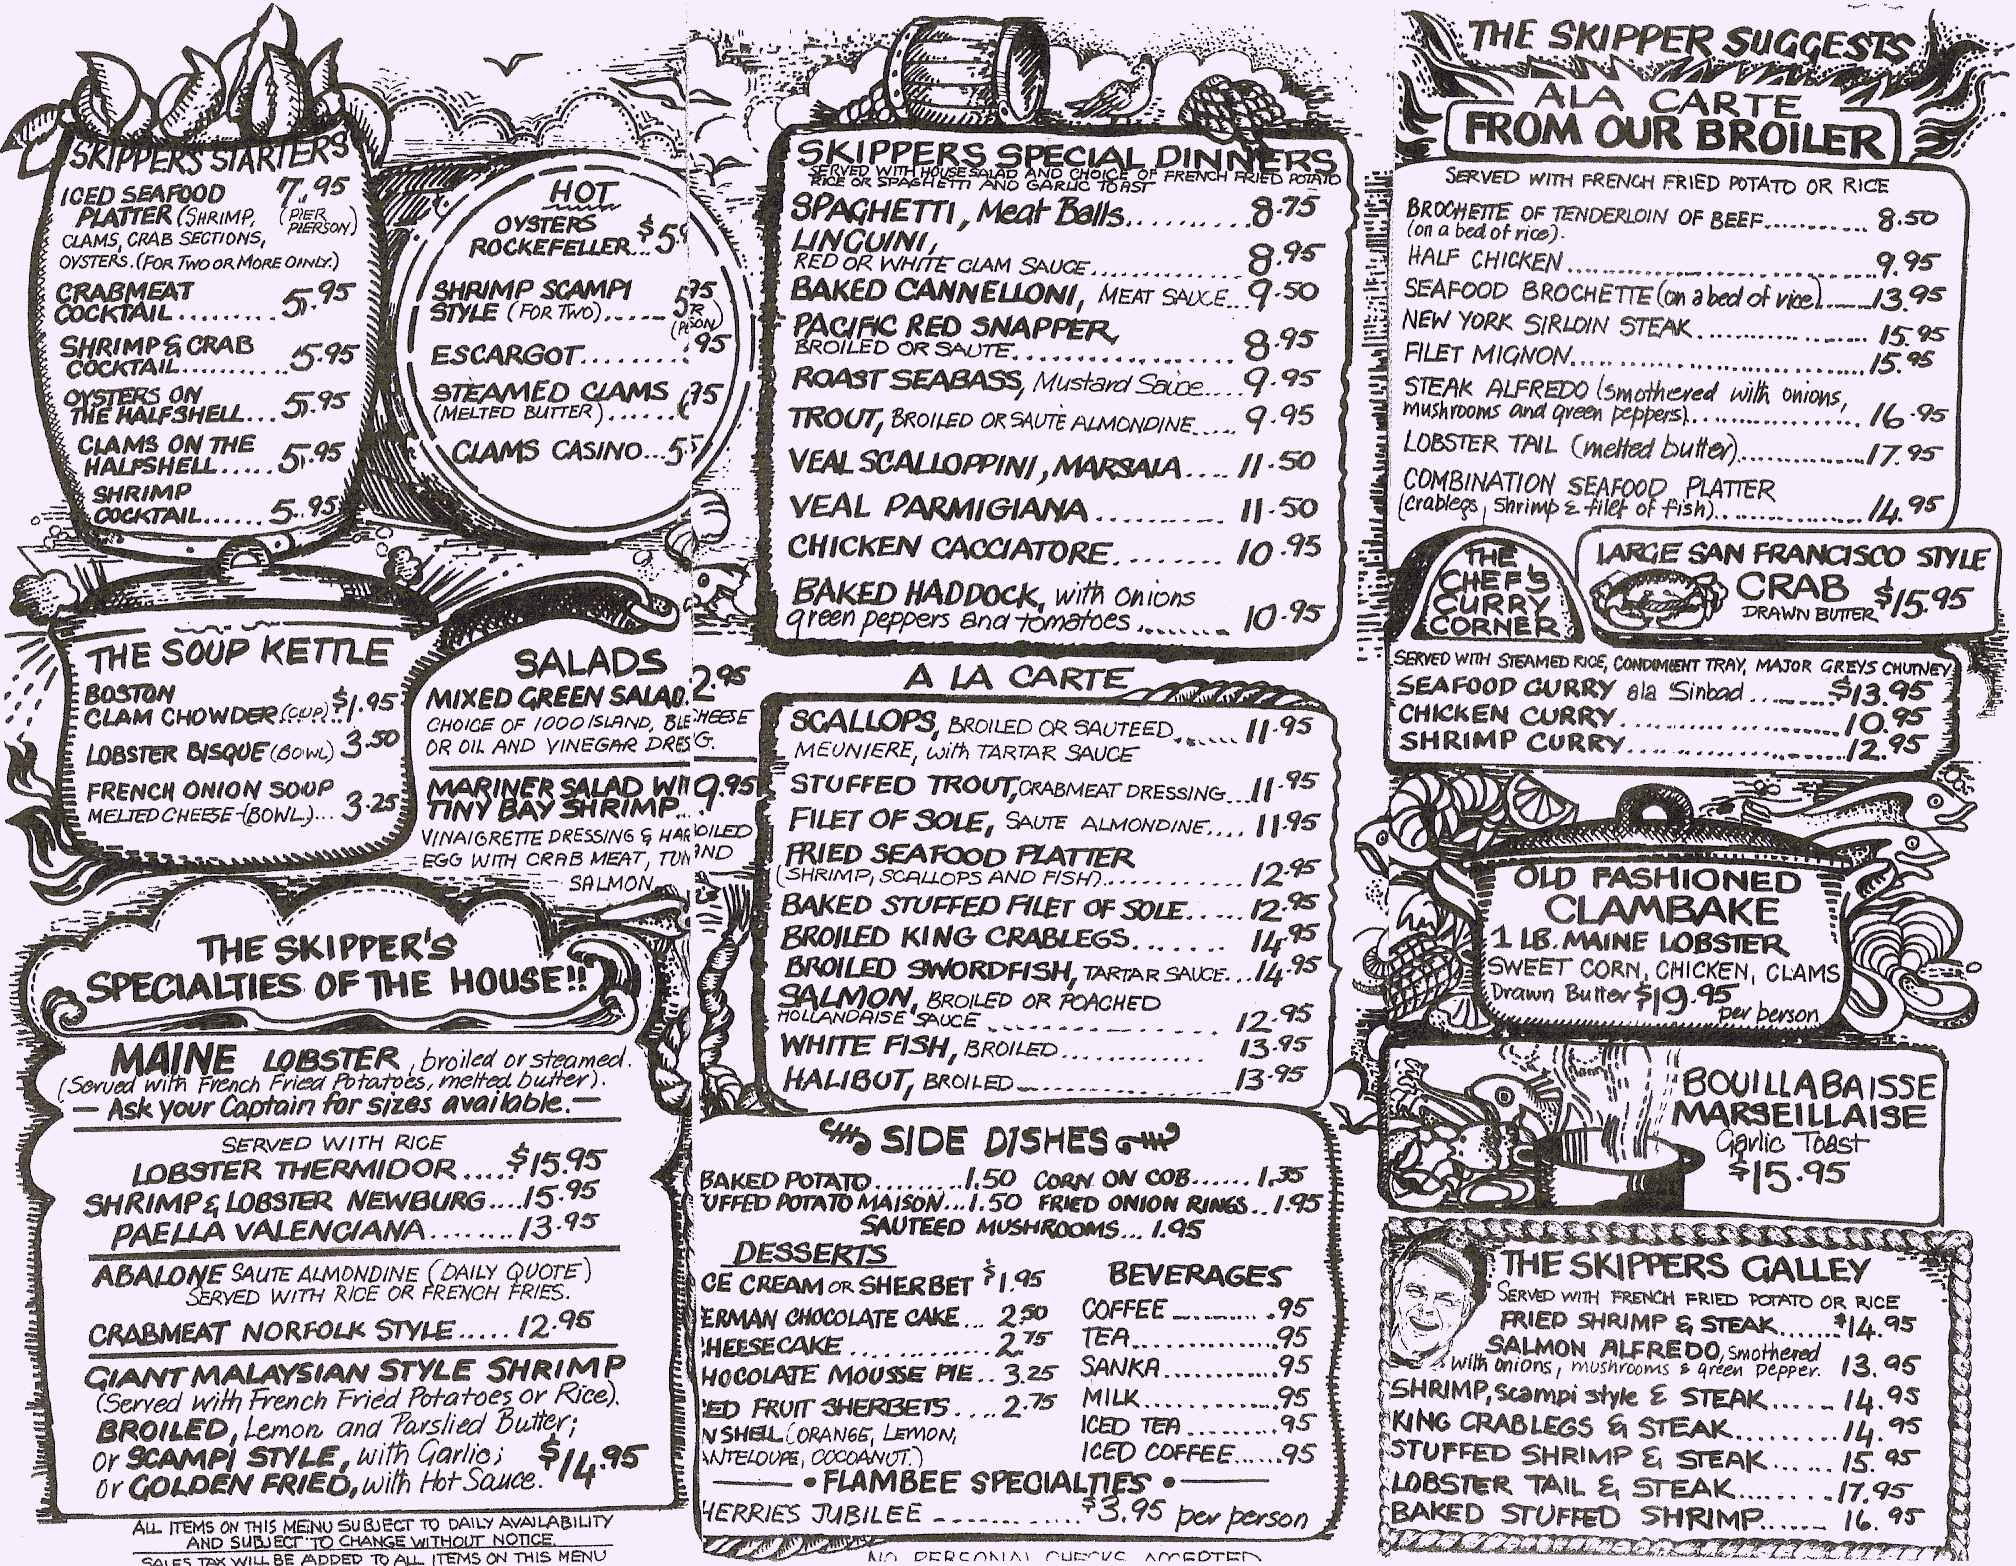 SKIPPERS STARTERS
ICED SEAFOOD 7.95
PLATTER (SHRIMP, (PIER PIERSON)
CLAMS, CRAB SECTIONS,
OYSTERS. (FOR TWO OR MORE ONLY.)
CRABMEAT
COCKTAIL......... 5.95
SHRIMP & CRAB
COCKTAIL.......... 5.95
OYSTERS ON
THE HALFSHELL... 5.95
CLAMS ON THE
HALFSHELL..... 5.95
SHRIMP
COCKTAIL...... 5.95
HOT
OYSTERS
ROCKEFELLER..$5.
SHRIMP SCAMPI
STYLE (FOR TWO)...... 5.95
ESCARGOT........ .95
STEAMED CLAMS
(MELTED BUTTER)...... 75
CLAMS CASINO...5.
THE SOUP KETTLE
BOSTON
CLAM CHOWDER (CUP)..$1.95
LOBSTER BISQUE (BOWL) 3.50
FRENCH ONION SOUP
MELTED CHEESE-(BOWL)... 3.25
SALADS
MIXED GREEN SALAD. 2.95
CHOICE OF 1000 ISLAND, BLE CHEESE
OR OIL AND VINEGAR DRES'G.
MARINER SALAD WI 9.95
TINY BAY SHRIMP...
VINAIGRETTE DRESSING & HAR OILED
EGG WITH CRAB MEAT, TUN AND
SALMON
THE SKIPPER'S
SPECIALTIES OF THE HOUSE!!
MAINE LOBSTER, broiled or steamed.
(Served with French Fried Potatoes, melted butter).
— Ask your Captain for sizes available.—
SERVED WITH RICE
LOBSTER THERMIDOR.....$15.95
SHRIMP & LOBSTER NEWBURG....15.95
PAELLA VALENCIANA........13.95
ABALONE SAUTE ALMONDINE (DAILY QUOTE)
SERVED WITH RICE OR FRENCH FRIES.
CRABMEAT NORFOLK STYLE..... 12.95
GIANT MALAYSIAN STYLE SHRIMP
(Served with French Fried Potatoes or Rice).
BROILED, Lemon and Parslied Butter;
or SCAMPI STYLE, with Garlic;
or GOLDEN FRIED, with Hot Sauce. $14.95
ALL ITEMS ON THIS MENU SUBJECT TO DAILY AVAILABILITY
AND SUBJECT TO CHANGE WITHOUT NOTICE.
SALES TAX WILL BE ADDED TO ALL ITEMS ON THIS MENU
SKIPPERS SPECIAL DINNERS
SERVED WITH HOUSE SALAD AND CHOICE OF FRENCH FRIED POTATO
RICE OR SPAGHETTI AND GARLIC TOAST
SPAGHETTI, Meat Balls......... 8.75
LINGUINI,
RED OR WHITE CLAM SAUCE............ 8.95
BAKED CANNELLONI, MEAT SAUCE... 9.50
PACIFIC RED SNAPPER,
BROILED OR SAUTE................... 8.95
ROAST SEABASS, Mustard Sauce.... 9.95
TROUT, BROILED OR SAUTE ALMONDINE..... 9.95
VEAL SCALLOPPINI, MARSALA.... 11.50
VEAL PARMIGIANA.......... 11.50
CHICKEN CACCIATORE........ 10.95
BAKED HADDOCK, with onions
green peppers and tomatoes....... 10.95
A LA CARTE
SCALLOPS, BROILED OR SAUTEED...... 11.95
MEUNIERE, with TARTAR SAUCE
STUFFED TROUT, CRABMEAT DRESSING...11.95
FILET OF SOLE, SAUTE ALMONDINE.... 11.95
FRIED SEAFOOD PLATTER
(SHRIMP, SCALLOPS AND FISH)............ 12.95
BAKED STUFFED FILET OF SOLE..... 12.95
BROILED KING CRABLEGS....... 14.95
BROILED SWORDFISH, TARTAR SAUCE...14.95
SALMON, BROILED OR POACHED
HOLLANDAISE SAUCE .................. 12.95
WHITE FISH, BROILED............. 13.95
HALIBUT, BROILED................ 13.95
SIDE DISHES
BAKED POTATO.........1.50 CORN ON COB...... 1.35
UFFED POTATO MAISON...1.50 FRIED ONION RINGS.. 1.95
SAUTEED MUSHROOMS... 1.95
DESSERTS
CE CREAM OR SHERBET $1.95
ERMAN CHOCOLATE CAKE... 2.50
HEESECAKE ............. 2.75
HOCOLATE MOUSSE PIE.. 3.25
ED FRUIT SHERBETS.... 2.75
N SHELL (ORANGE, LEMON,
ANTELOUPE, COCOANUT.)
BEVERAGES
COFFEE........... .95
TEA............... .95
SANKA............ .95
MILK............. .95
ICED TEA.......... .95
ICED COFFEE...... .95
• FLAMBEE SPECIALTIES •
HERRIES JUBILEE ..............$3.95 per person
NO PERSONAL CHECKS ACCEPTED
THE SKIPPER SUGGESTS
ALA CARTE
FROM OUR BROILER
SERVED WITH FRENCH FRIED POTATO OR RICE
BROCHETTE OF TENDERLOIN OF BEEF........... 8.50
(on a bed of rice).
HALF CHICKEN................................. 9.95
SEAFOOD BROCHETTE (on a bed of rice)......13.95
NEW YORK SIRLOIN STEAK.................. 15.95
FILET MIGNON.............................. 15.95
STEAK ALFREDO (smothered with onions,
mushrooms and green peppers).................. 16.95
LOBSTER TAIL (melted butter)..............17.95
COMBINATION SEAFOOD PLATTER
(crablegs, Shrimp & filet of fish)................ 14.95
LARGE SAN FRANCISCO STYLE
CRAB
DRAWN BUTTER $15.95
THE
CHEF'S
CURRY
CORNER
SERVED WITH STEAMED RICE, CONDIMENT TRAY, MAJOR GREYS CHUTNEY
SEAFOOD CURRY ala Sinbad .........$13.95
CHICKEN CURRY....................10.95
SHRIMP CURRY....................12.95
OLD FASHIONED
CLAMBAKE
1 LB. MAINE LOBSTER
SWEET CORN, CHICKEN, CLAMS
Drawn Butter $19.95
per person
BOUILLABAISSE
MARSEILLAISE
Garlic Toast
$15.95
THE SKIPPERS GALLEY
SERVED WITH FRENCH FRIED POTATO OR RICE
FRIED SHRIMP & STEAK.......$14.95
SALMON ALFREDO, smothered
with onions, mushrooms & green pepper. 13.95
SHRIMP, scampi style & STEAK...... 14.95
KING CRABLEGS & STEAK......... 14.95
STUFFED SHRIMP & STEAK...... 15.95
LOBSTER TAIL & STEAK.........17.95
BAKED STUFFED SHRIMP...... 16.95